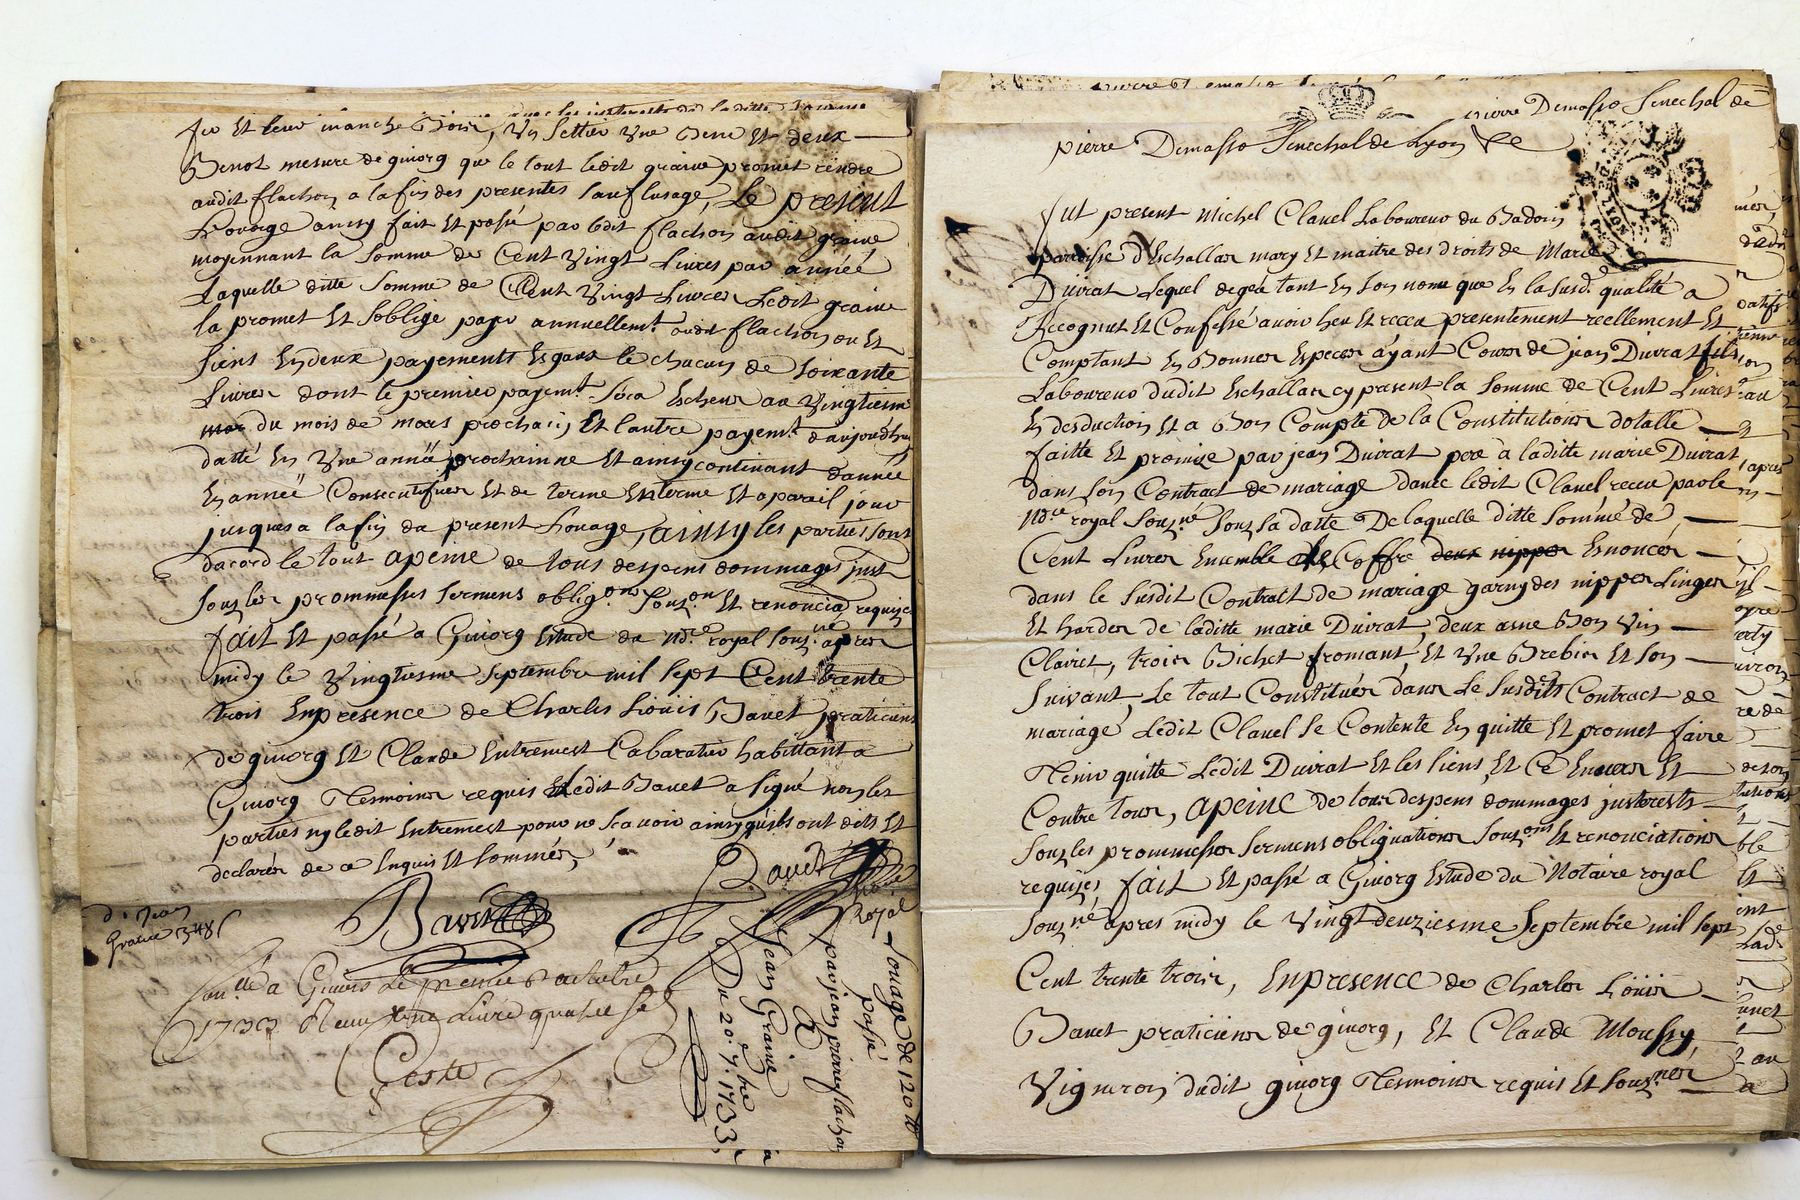 fer Et leur manche Boir, Un settier Une Benne Et deux
Benot mesure de givorg que le tout ledit graine promet rendre
audit flachon a la fin des presentes sauf lusage, Le present
Louage ainsy fait Et passé par ledit flachon audit graine
moyennant la somme de Cent Vingt Livres par année
Laquelle ditte somme de Cent Vingt Livres Ledit graine
la promet Et soblige payer annuellemt. audit flachon ou Et
siens En deux payements Egaux le chacun de soixante
Livres dont le premier payemt. sera Escheu au Vingtiesme
du mois de mars prochain Et lautre payemt. daujourdhuy
datté En Une année prochainne Et ainsy continuant dannée
En année Consecutifves Et de terme En terme Et a pareil jour
jusques a la fin du present Louage, ainsy les parties sont
dacord le tout apeine de tous despens dommages jnst
souz les prommesses sermens oblig.ons souz.on Et renoncia requises
fait Et passé a Givorg Estude du No.re royal souz.né apres
midy le Vingtiesme septembre mil sept Cent trente
trois En presence de Charles Loüis Bavet praticien
de givorg Et Claude Entremest Cabaratier habittant a
Givorg Tesmoins requis Ledit Bavet a signé non les
parties ny ledit Entremest pour ne scavoir ainsy quils ont dits Et
declarés de ce Enquis Et sommés,
Bavet
Bavet
Royal
d. Jean
Graine
a Givors Le premier octobre
1733 Receu Une Livre quatre
Coste
Louage de 120 ₶
passé
par jean pierre flachon
a
Jean Graine
Du 20. 7.bre 1733
pierre Demasso senechal de
pierre Demasso senechal de Lyon
fut present Michel Clavel Laboureur du Badoin
parroisse dEschallas mary Et maitre des droits de Marie
Duivat Lequel degré tant En son nom que En la susd.e qualité a
Recognut Et Confessé avoir heu Et receu presentement reellement Et
Comptant En Bonnes Especes ayant Cours de jean Duivat fils
Laboureur dudit Eschallas cy present la somme de Cent Livres
En desduction Et a Bon Compte de la Constitution dotalle
faitte Et promise par jean Duivat pere à laditte marie Duivat
dans son Contract de mariage davec ledit Clavel receu par le
No.re royal souz.né souz sa datte De laquelle ditte sommé de
Cent Livres Ensemble Coffre deux nippes Esnoncés
dans le susdit Contract de mariage garny des nippes Linges
Et hardes de laditte marie Duivat, deux asne Bon Vin
Clairet, trois Bichet fromant, Et Une Brebis Et son
suivant, Le tout Constitués dans Le susdits Contract de
mariage Ledit Clavel se Contente En quitte Et promet faire
Tenir quitte Ledit Duivat Et les siens Et Ce Envers Et
Contre tous, apeine de tous despens dommages jnterests
souz les prommesses sermens obligations souz.ons Et renonciations
requises fait Et passé a Givorg Estude du Notaire royal
souz.né apres midy le Vingt deuziesme septembre mil sept
Cent trente trois, En presence de Charles Loüis
Bavet praticien de givorg, Et Claude Moussy,
Vigneron dudit givorg Tesmoins requis Et souz.nés